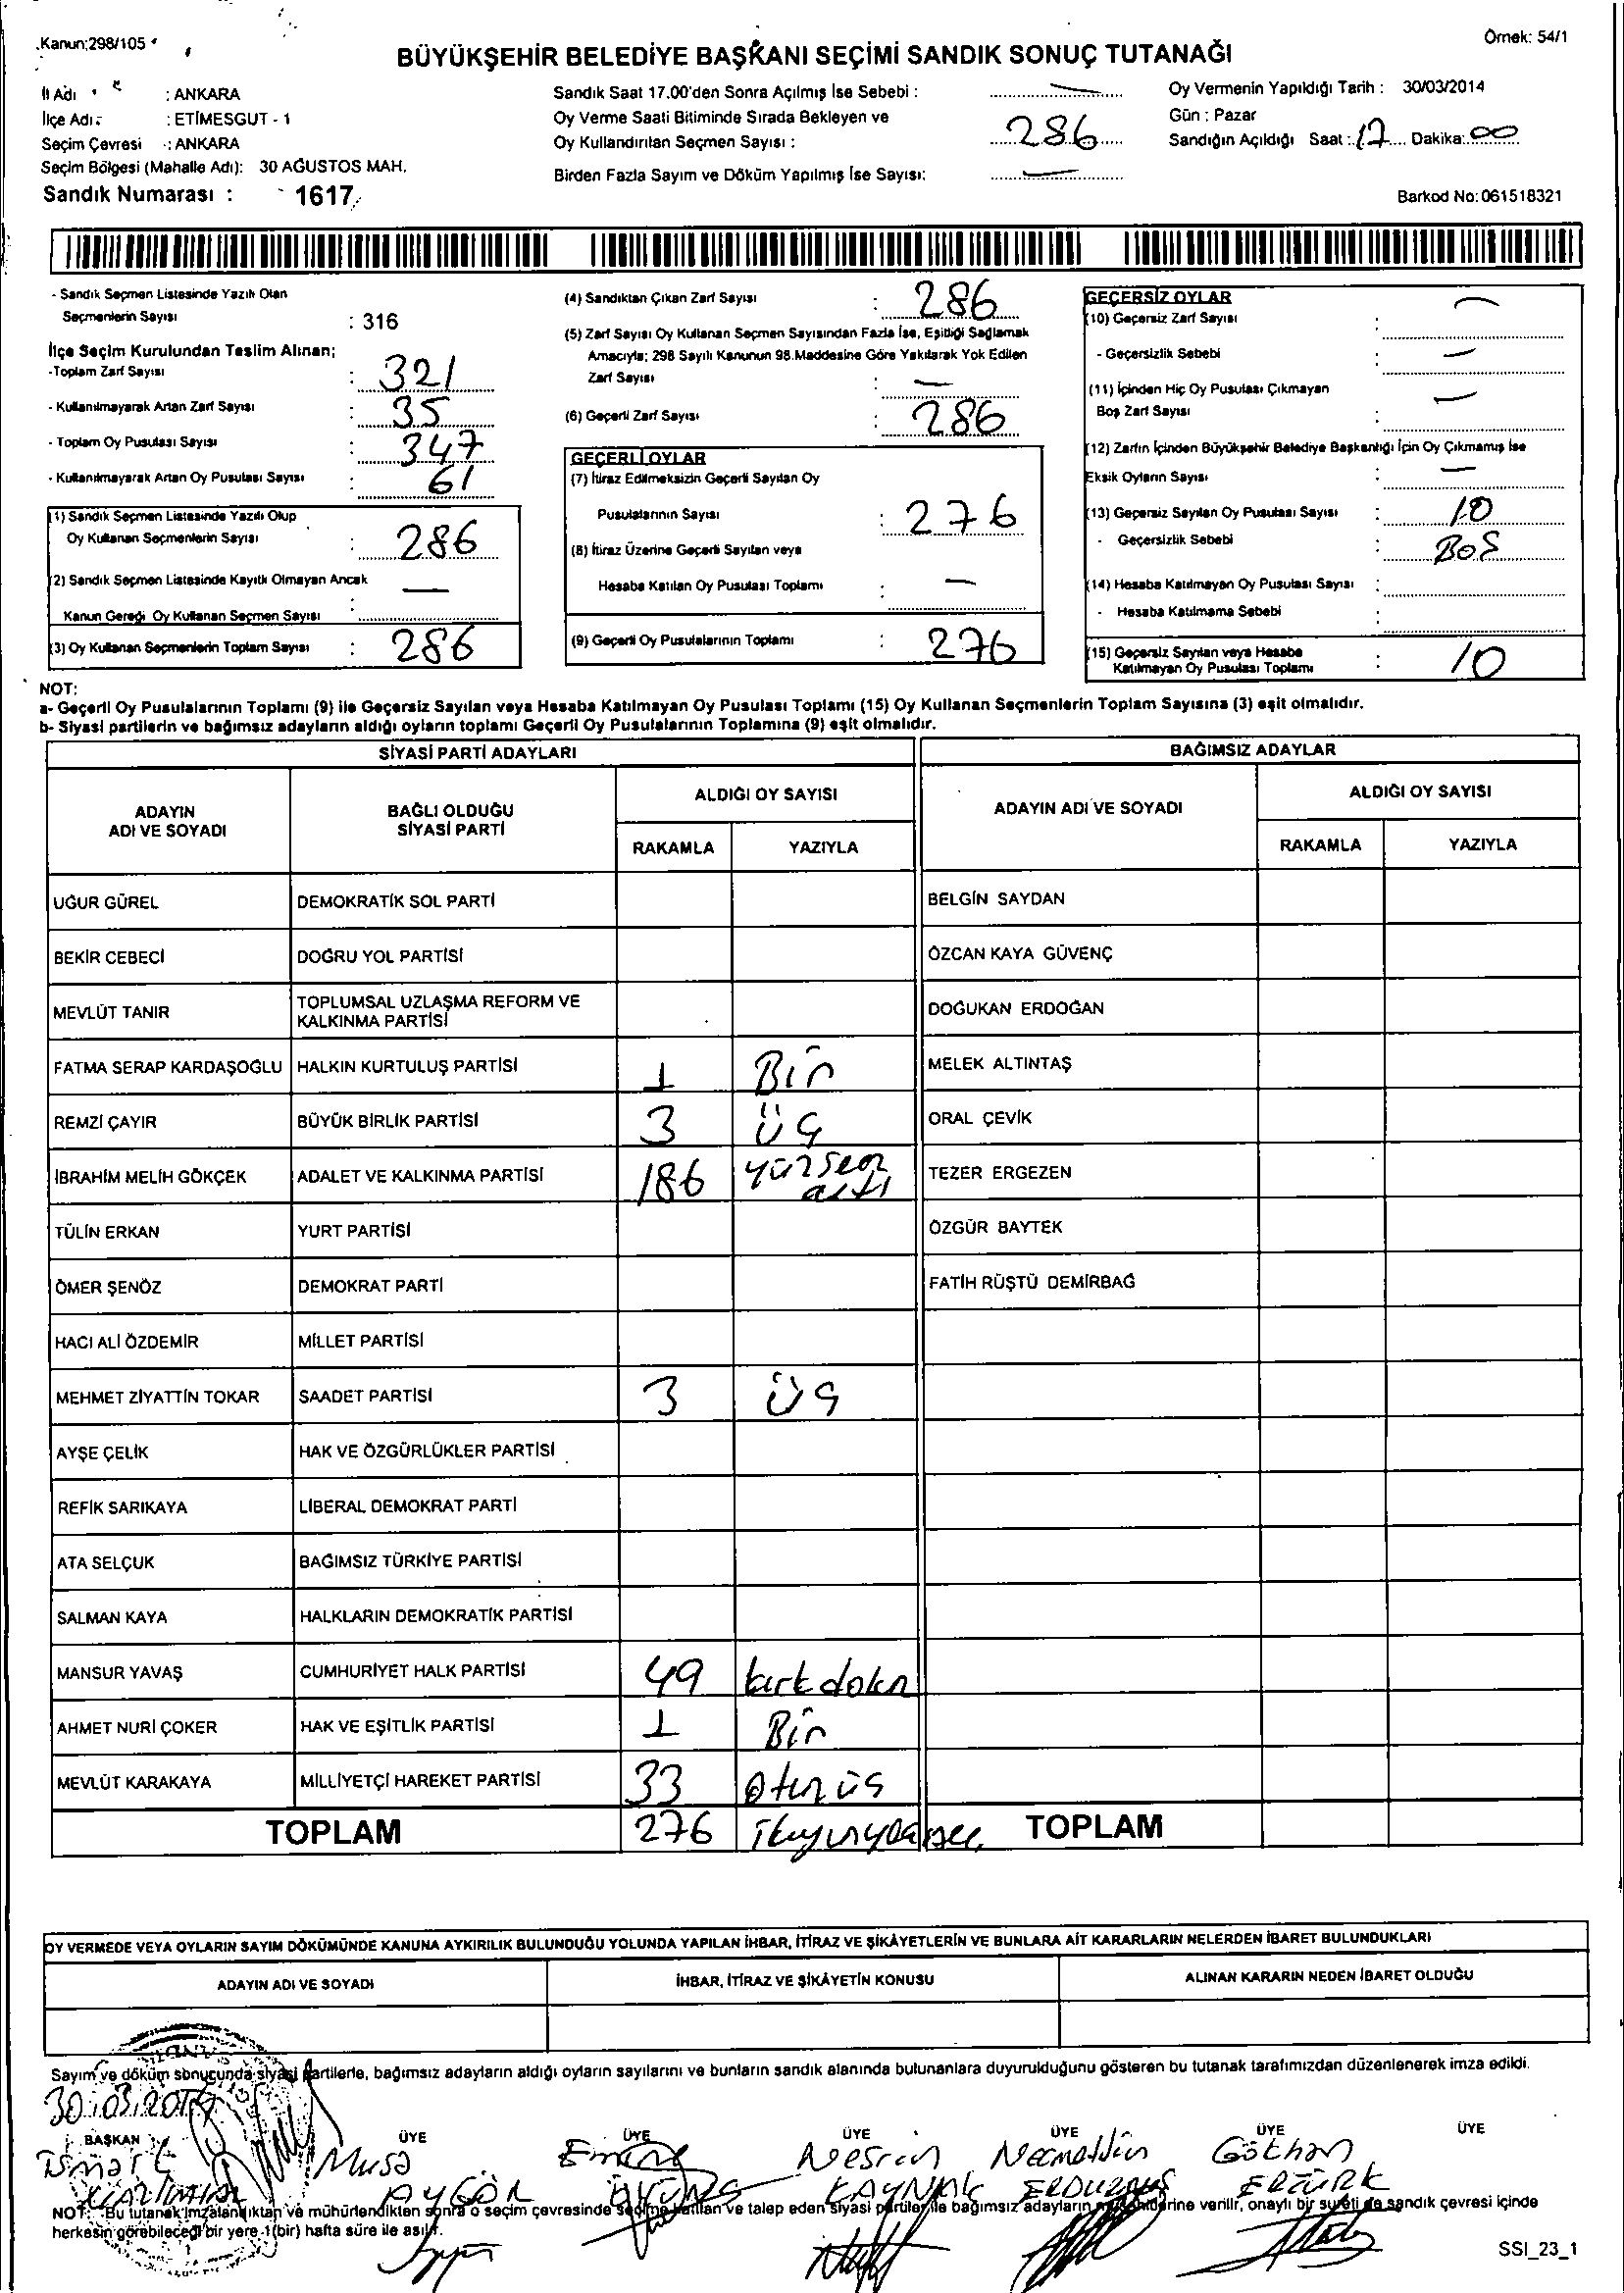 Kanun:298/105
Örnek: 54/1
BÜYÜKŞEHİR BELEDİYE BAŞKANI SEÇİMİ SANDIK SONUÇ TUTANAĞI
İl Adı : ANKARA
İlçe Adı : ETİMESGUT - 1
Seçim Çevresi : ANKARA
Seçim Bölgesi (Mahalle Adı): 30 AĞUSTOS MAH.
Sandık Numarası : 1617
Sandık Saat 17.00'den Sonra Açılmış İse Sebebi : —
Oy Verme Saati Bitiminde Sırada Bekleyen ve
Oy Kullandırılan Seçmen Sayısı : 286
Birden Fazla Sayım ve Döküm Yapılmış İse Sayısı: —
Oy Vermenin Yapıldığı Tarih : 30/03/2014
Gün : Pazar
Sandığın Açıldığı Saat : 17 Dakika: 00
Barkod No: 061518321
- Sandık Seçmen Listesinde Yazılı Olan
Seçmenlerin Sayısı : 316
İlçe Seçim Kurulundan Teslim Alınan;
-Toplam Zarf Sayısı : 321
- Kullanılmayarak Artan Zarf Sayısı : 35
- Toplam Oy Pusulası Sayısı : 347
- Kullanılmayarak Artan Oy Pusulası Sayısı : 61
(1) Sandık Seçmen Listesinde Yazılı Olup
Oy Kullanan Seçmenlerin Sayısı : 286
(2) Sandık Seçmen Listesinde Kayıtlı Olmayan Ancak
Kanun Gereği Oy Kullanan Seçmen Sayısı : —
(3) Oy Kullanan Seçmenlerin Toplam Sayısı : 286
(4) Sandıktan Çıkan Zarf Sayısı : 286
(5) Zarf Sayısı Oy Kullanan Seçmen Sayısından Fazla İse, Eşitliği Sağlamak
Amacıyla; 298 Sayılı Kanunun 98.Maddesine Göre Yakılarak Yok Edilen
Zarf Sayısı : —
(6) Geçerli Zarf Sayısı : 286
GEÇERLİ OYLAR
(7) İtiraz Edilmeksizin Geçerli Sayılan Oy
Pusulalarının Sayısı : 276
(8) İtiraz Üzerine Geçerli Sayılan veya
Hesaba Katılan Oy Pusulası Toplamı : —
(9) Geçerli Oy Pusulalarının Toplamı : 276
GEÇERSİZ OYLAR
(10) Geçersiz Zarf Sayısı : —
- Geçersizlik Sebebi : —
(11) İçinden Hiç Oy Pusulası Çıkmayan
Boş Zarf Sayısı : —
(12) Zarfın İçinden Büyükşehir Belediye Başkanlığı İçin Oy Çıkmamış İse
Eksik Oyların Sayısı : —
(13) Geçersiz Sayılan Oy Pusulası Sayısı : 10
- Geçersizlik Sebebi : BOŞ
(14) Hesaba Katılmayan Oy Pusulası Sayısı :
- Hesaba Katılmama Sebebi :
(15) Geçersiz Sayılan veya Hesaba
Katılmayan Oy Pusulası Toplamı : 10
NOT:
a- Geçerli Oy Pusulalarının Toplamı (9) ile Geçersiz Sayılan veya Hesaba Katılmayan Oy Pusulası Toplamı (15) Oy Kullanan Seçmenlerin Toplam Sayısına (3) eşit olmalıdır.
b- Siyasi partilerin ve bağımsız adayların aldığı oyların toplamı Geçerli Oy Pusulalarının Toplamına (9) eşit olmalıdır.
SİYASİ PARTİ ADAYLARI BAĞIMSIZ ADAYLAR
ADAYIN ADI VE SOYADI BAĞLI OLDUĞU SİYASİ PARTİ ALDIĞI OY SAYISI ADAYIN ADI VE SOYADI ALDIĞI OY SAYISI
RAKAMLA YAZIYLA RAKAMLA YAZIYLA
UĞUR GÜREL DEMOKRATİK SOL PARTİ BELGİN SAYDAN
BEKİR CEBECİ DOĞRU YOL PARTİSİ ÖZCAN KAYA GÜVENÇ
MEVLÜT TANIR TOPLUMSAL UZLAŞMA REFORM VE KALKINMA PARTİSİ DOĞUKAN ERDOĞAN
FATMA SERAP KARDAŞOĞLU HALKIN KURTULUŞ PARTİSİ 1 Bir MELEK ALTINTAŞ
REMZİ ÇAYIR BÜYÜK BİRLİK PARTİSİ 3 üç ORAL ÇEVİK
İBRAHİM MELİH GÖKÇEK ADALET VE KALKINMA PARTİSİ 186 altı TEZER ERGEZEN
TÜLİN ERKAN YURT PARTİSİ ÖZGÜR BAYTEK
ÖMER ŞENÖZ DEMOKRAT PARTİ FATİH RÜŞTÜ DEMİRBAĞ
HACI ALİ ÖZDEMİR MİLLET PARTİSİ
MEHMET ZİYATTİN TOKAR SAADET PARTİSİ 3 üç
AYŞE ÇELİK HAK VE ÖZGÜRLÜKLER PARTİSİ
REFİK SARIKAYA LİBERAL DEMOKRAT PARTİ
ATA SELÇUK BAĞIMSIZ TÜRKİYE PARTİSİ
SALMAN KAYA HALKLARIN DEMOKRATİK PARTİSİ
MANSUR YAVAŞ CUMHURİYET HALK PARTİSİ 49
AHMET NURİ ÇOKER HAK VE EŞİTLİK PARTİSİ 1 Bir
MEVLÜT KARAKAYA MİLLİYETÇİ HAREKET PARTİSİ 33
TOPLAM 276 TOPLAM
OY VERMEDE VEYA OYLARIN SAYIM DÖKÜMÜNDE KANUNA AYKIRILIK BULUNDUĞU YOLUNDA YAPILAN İHBAR, İTİRAZ VE ŞİKÂYETLERİN VE BUNLARA AİT KARARLARIN NELERDEN İBARET BULUNDUKLARI
ADAYIN ADI VE SOYADI İHBAR, İTİRAZ VE ŞİKÂYETİN KONUSU ALINAN KARARIN NEDEN İBARET OLDUĞU
Sayım ve döküm sonucunda siyasi partilerle, bağımsız adayların aldığı oyların sayılarını ve bunların sandık alanında bulunanlara duyurulduğunu gösteren bu tutanak tarafımızdan düzenlenerek imza edildi.
30.03.2014
BAŞKAN ÜYE ÜYE ÜYE ÜYE ÜYE ÜYE
Musa Emine Nesrin Necmettin Gökhan
AYGÖR KAYNAK ERTÜRK
NOT: Bu tutanak imzalandıktan ve mühürlendikten sonra o seçim çevresinde seçime katılan ve talep eden siyasi partiler ile bağımsız adayların müşahitlerine verilir, onaylı bir sureti de sandık çevresi içinde
herkesin görebileceği bir yere 1(bir) hafta süre ile asılır.
SSI_23_1